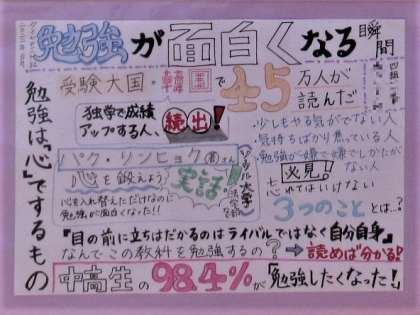 勉強が面白くなる瞬間
受験大国・韓国で45万人が読んだ
勉強は"心"でするもの
独学で成績
アップする人、続出!
・少しもやる気がでない人
・気持ちばかり焦っている人
・勉強が嫌で嫌でしかたがない人
必見!
パク・ソンヒョク(著)さん
ソウル大学
法学部
心を鍛えよう
実話
心を入れ替えただけなのに
勉強が面白くなった!!
忘れてはいけない
3つのこととは…?
『目の前に立ちはだかるのはライバルではなく自分自身』
なんでこの教科を勉強するの?→読めば分かる!
中高生の98.4%が「勉強したくなった!」